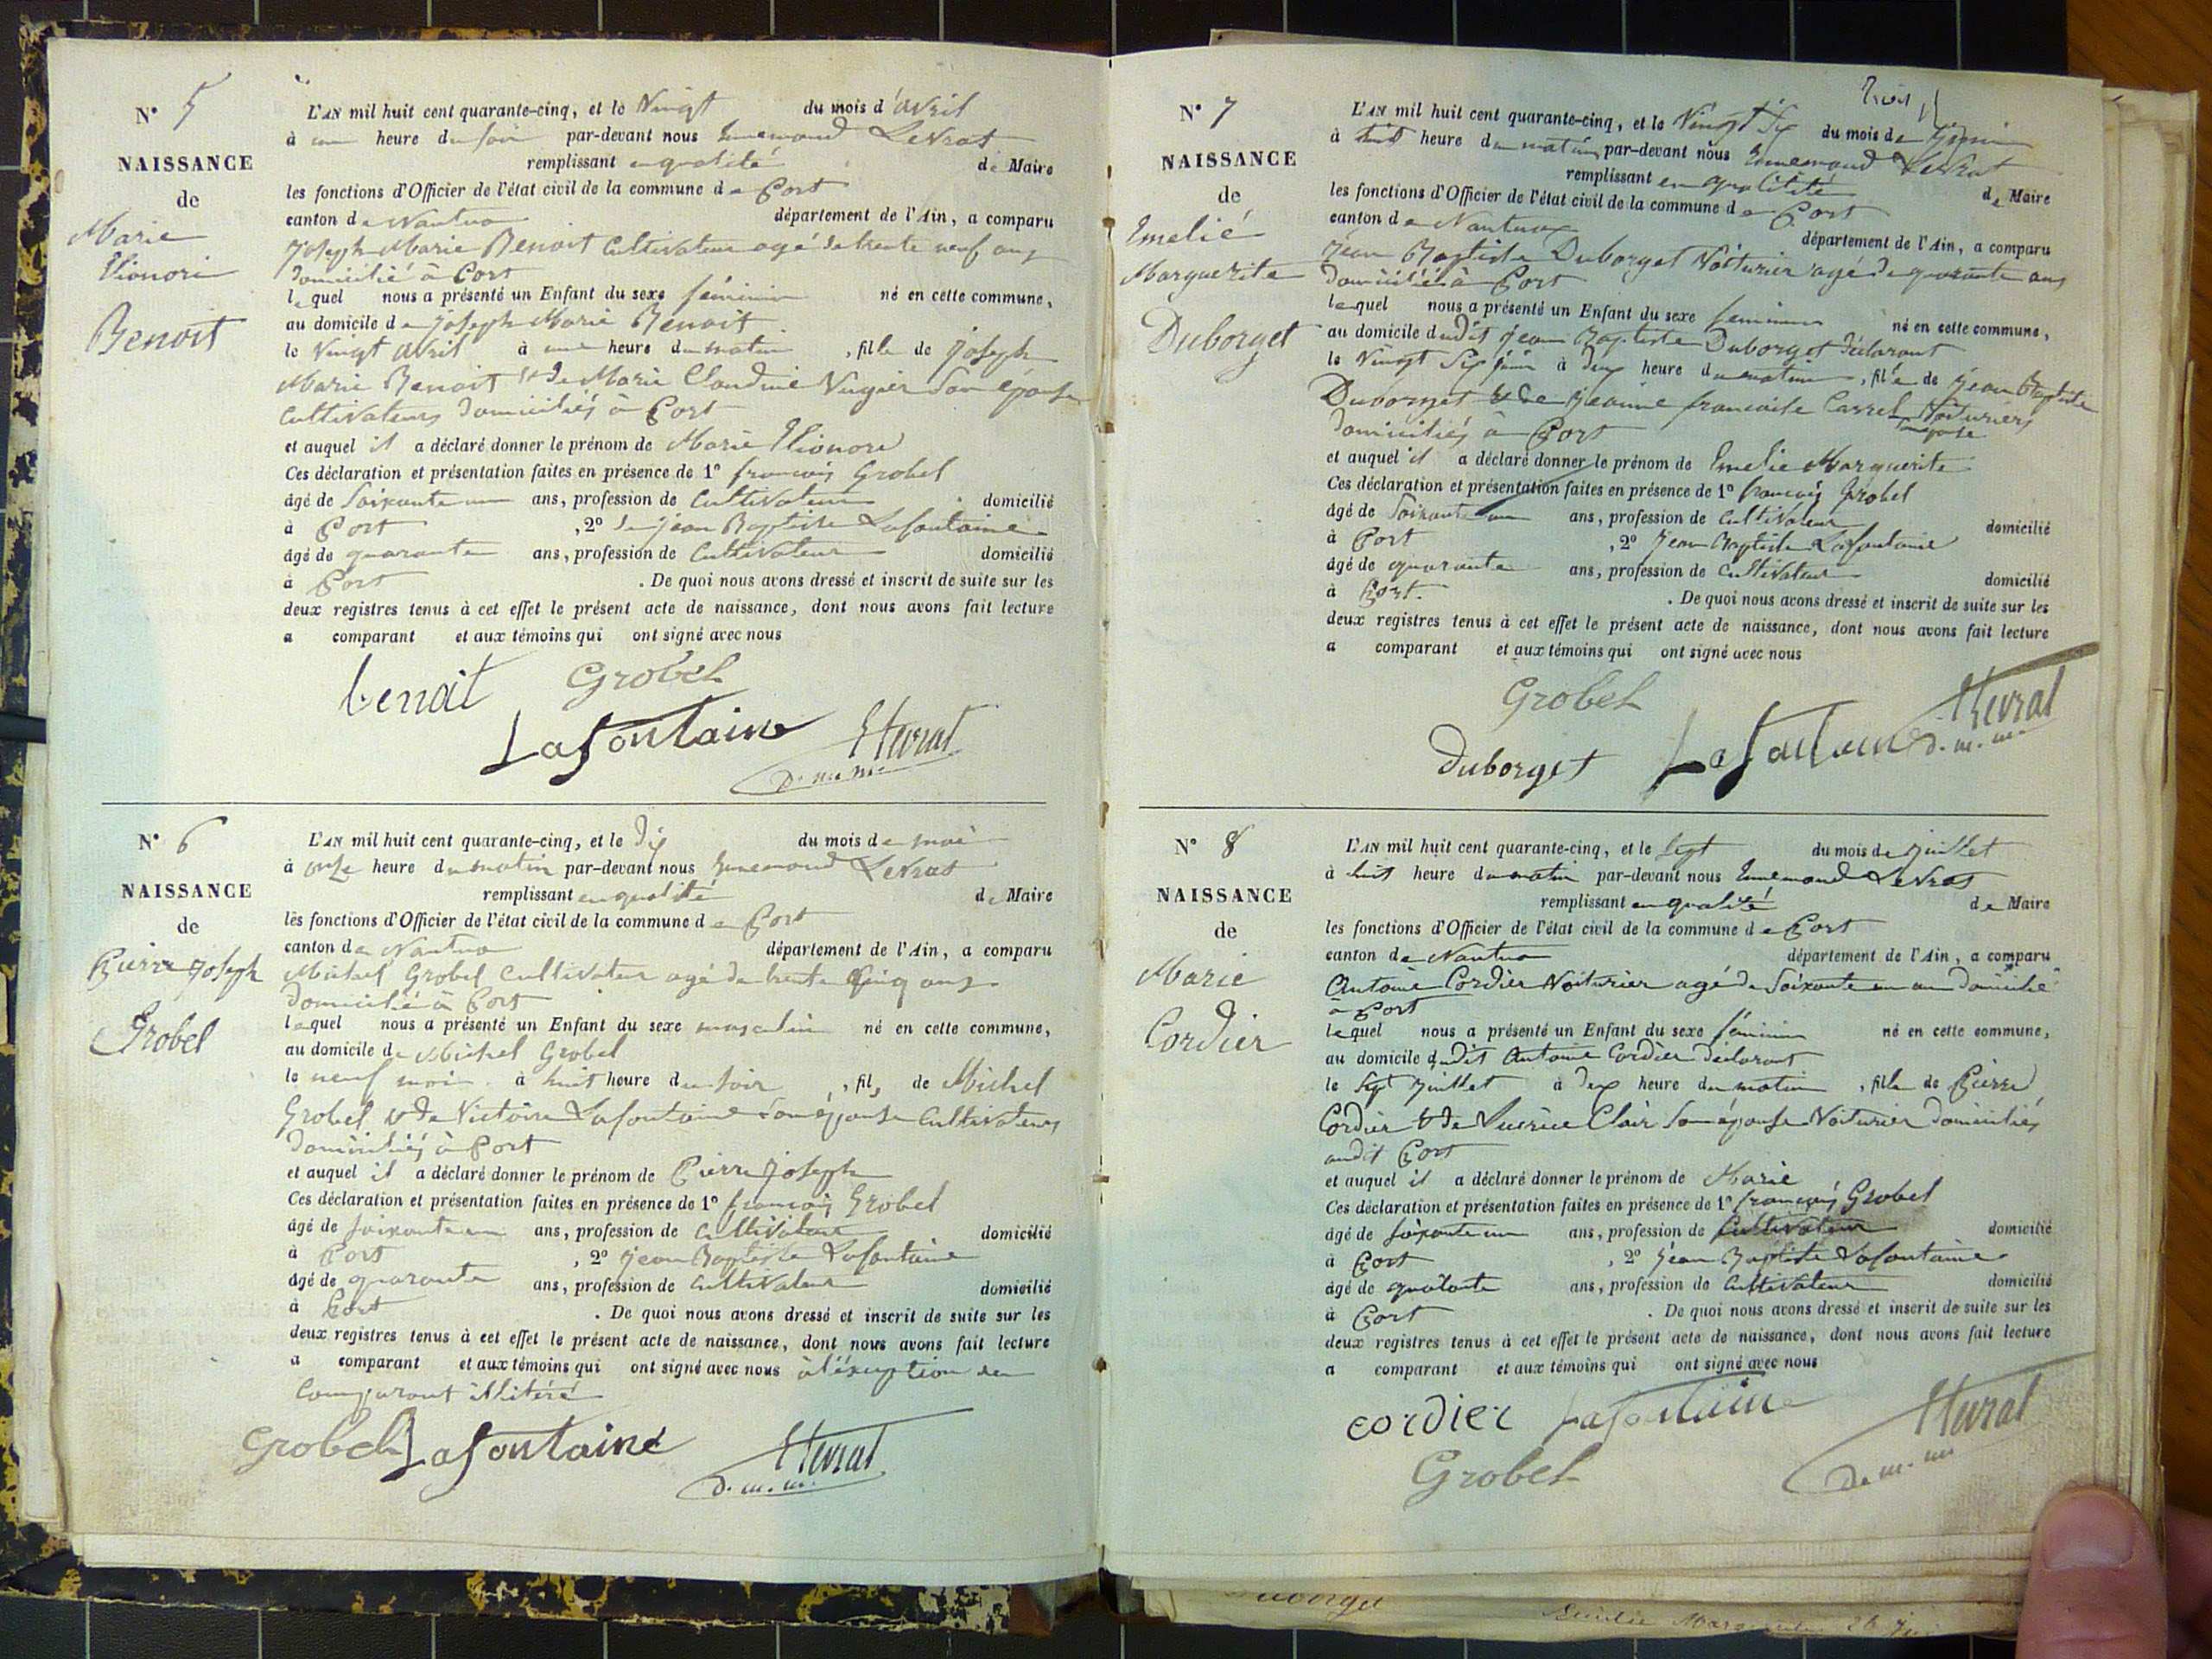 N° 5
NAISSANCE
de
Marie
Elionore
Benoit
L'AN mil huit cent quarante-cinq, et le Vingt du mois d'avril
à une heure du soir par-devant nous Ennemond Levrat
remplissant en qualité de Maire
les fonctions d'Officier de l'état civil de la commune de Port
canton de Nantua département de l'Ain, a comparu
Joseph Marie Benoit Cultivateur agé de trente neuf ans
domicilié à Port
lequel nous a présenté un Enfant du sexe féminin né en cette commune,
au domicile de Joseph Marie Benoit
le Vingt avril à une heure du matin, fille de Joseph
Marie Benoit et de Marie Claudine Vugier son épouse
Cultivateurs domiciliés à Port
et auquel il a déclaré donner le prénom de Marie Elionore
Ces déclaration et présentation faites en présence de 1° françois Grobel
âgé de Soixante un ans, profession de Cultivateur domicilié
à Port, 2° de Jean Baptiste Lafontaine
âgé de quarante ans, profession de Cultivateur domicilié
à Port. De quoi nous avons dressé et inscrit de suite sur les
deux registres tenus à cet effet le présent acte de naissance, dont nous avons fait lecture
a comparant et aux témoins qui ont signé avec nous
benoit Grobel
Lafontaine ELevrat
N° 6
NAISSANCE
de
Pierre Joseph
Grobel
L'AN mil huit cent quarante-cinq, et le dix du mois de mai
à onze heure du matin par-devant nous Ennemond Levrat
remplissant en qualité de Maire
les fonctions d'Officier de l'état civil de la commune de Port
canton de Nantua département de l'Ain, a comparu
Michel Grobel Cultivateur agé de trente cinq ans
domicilié à Port
lequel nous a présenté un Enfant du sexe masculin né en cette commune,
au domicile de Michel Grobel
le neuf mai à huit heure du soir, fils de Michel
Grobel et de Victoire Lafontaine son épouse Cultivateurs
domiciliés à Port
et auquel il a déclaré donner le prénom de Pierre Joseph
Ces déclaration et présentation faites en présence de 1° françois Grobel
âgé de soixante un ans, profession de Cultivateur domicilié
à Port, 2° Jean Baptiste Lafontaine
âgé de quarante ans, profession de Cultivateur domicilié
à Port. De quoi nous avons dressé et inscrit de suite sur les
deux registres tenus à cet effet le présent acte de naissance, dont nous avons fait lecture
a comparant et aux témoins qui ont signé avec nous à l'éxeption du
Comparant illitéré
Grobel Lafontaine ELevrat
d. m. m.
N° 7
NAISSANCE
de
Emelié
Marguerite
Duborget
L'AN mil huit cent quarante-cinq, et le Vingt Six du mois de Juin
à huit heure du matin par-devant nous Ennemond Levrat
remplissant en qualitité de Maire
les fonctions d'Officier de l'état civil de la commune de Port
canton de Nantua département de l'Ain, a comparu
Jean Baptiste Duborget Voiturier agé de quarante ans
domicilié à Port
lequel nous a présenté un Enfant du sexe feminin né en cette commune,
au domicile dudit Jean Baptiste Duborget déclarant
le Vingt Six juin à deux heure du matin, fille de Jean Baptiste
Duborget et de Jeanne francoise Carrel Voituriers
son épouse
domiciliés à Port
et auquel il a déclaré donner le prénom de Emelie Marguerite
Ces déclaration et présentation faites en présence de 1° françois Grobel
âgé de Soixante un ans, profession de Cultivateur domicilié
à Port, 2° Jean Baptiste Lafontaine
âgé de quarante ans, profession de Cultivateur domicilié
à Port. De quoi nous avons dressé et inscrit de suite sur les
deux registres tenus à cet effet le présent acte de naissance, dont nous avons fait lecture
a comparant et aux témoins qui ont signé avec nous
Grobel
Duborget Lafontaine ELevrat
d. m. m.
N° 8
NAISSANCE
de
Marie
Cordier
L'AN mil huit cent quarante-cinq, et le Sept du mois de Juillet
à huit heure du matin par-devant nous Ennemond Levrat
remplissant en qualité de Maire
les fonctions d'Officier de l'état civil de la commune de Port
canton de Nantua département de l'Ain, a comparu
Antoine Cordier Voiturier agé de Soixante un an domicilié
à Port
lequel nous a présenté un Enfant du sexe féminin né en cette commune,
au domicile dudit Antoine Cordier déclarant
le Sept Juillet à deux heure du matin, fille de Pierre
Cordier et de Lucrèce Clair son épouse Voiturier domiciliés
audit Port
et auquel il a déclaré donner le prénom de Marie
Ces déclaration et présentation faites en présence de 1° françois Grobel
âgé de soixante un ans, profession de Cultivateur domicilié
à Port, 2° Jean Baptiste Lafontaine
âgé de quarante ans, profession de Cultivateur domicilié
à Port. De quoi nous avons dressé et inscrit de suite sur les
deux registres tenus à cet effet le présent acte de naissance, dont nous avons fait lecture
a comparant et aux témoins qui ont signé avec nous
cordier Lafontaine ELevrat
Grobel
Duborget